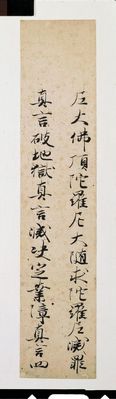 尼大佛頂陀羅尼大随求陀羅尼滅罪
真言破地獄真言滅決定業障真言四